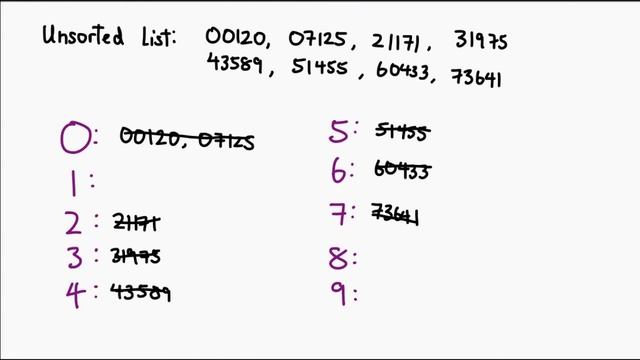 Unsorted List: 00120, 07125, 21171, 31975
43589, 51455, 60433, 73641
0: 00120, 07125
1:
2: 21171
3: 31975
4: 43589
5: 51455
6: 60433
7: 73641
8:
9: